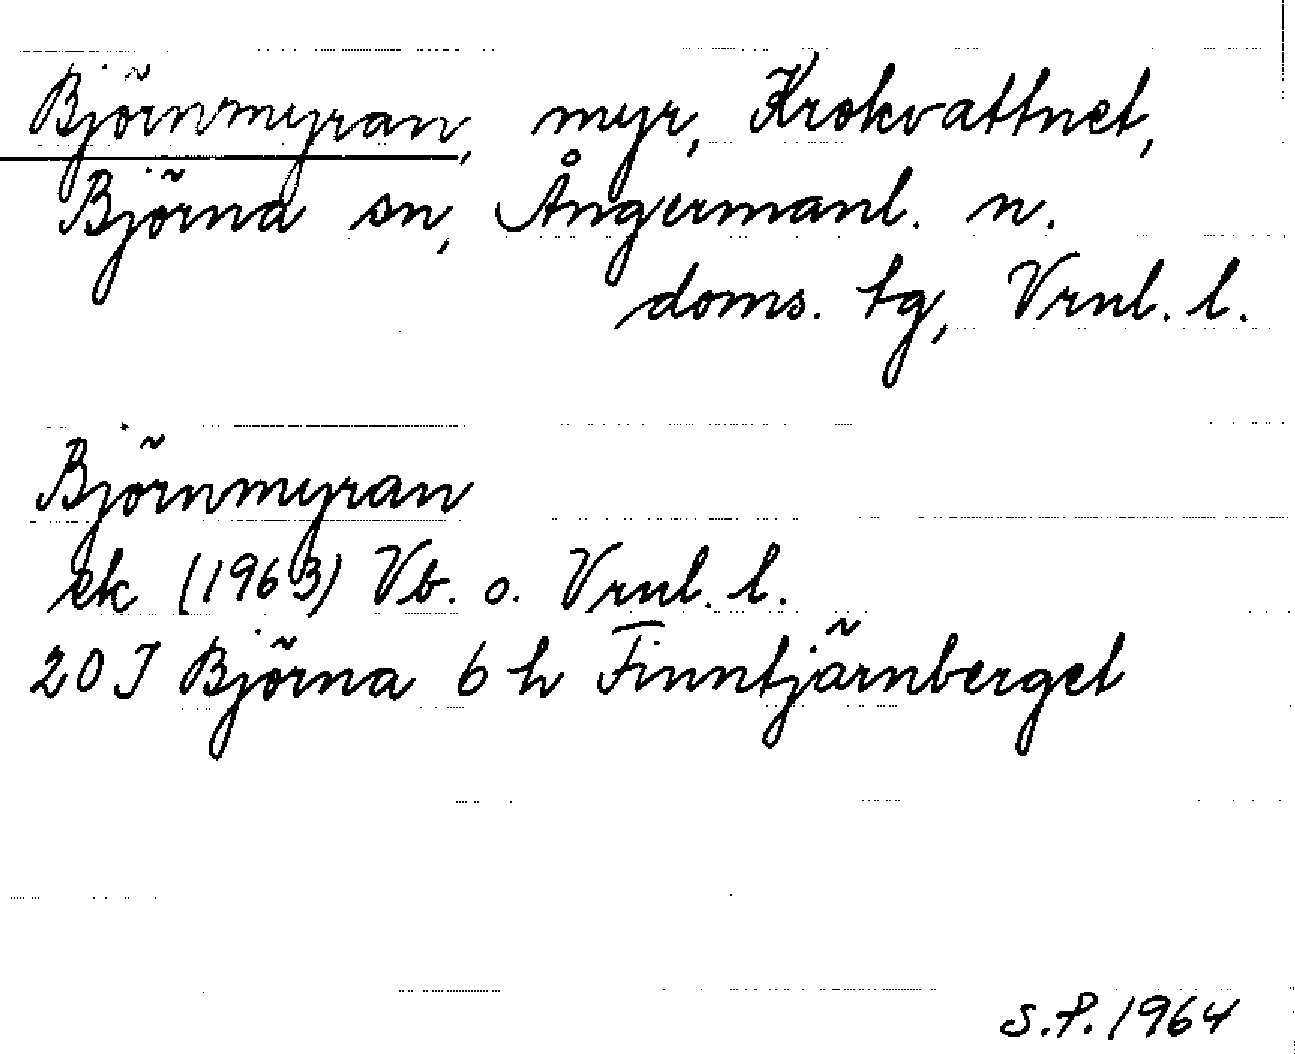 Björnmyran, myr, Krokvattnet,
Björna sn, Ångermanl. n.
doms. tg, Vrnl. l.
Björnmyran
ek (1963) Vb. o. Vrnl. l.
20 J Björna 6 h Finntjärnberget
S.P. 1964